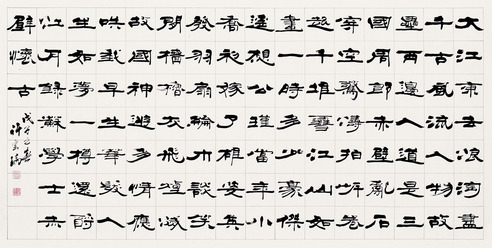 大江東去浪淘盡
千古風流人物故
壘西邊人道是三
國周郎赤壁亂石
穿空驚濤拍岸卷
起千堆雪江山如
畫一時多少豪傑
遙想公瑾當年小
喬初嫁了雄姿英
發羽扇綸巾談笑
間檣櫓灰飛煙滅
故國神遊多情應
笑我早生華髮人
生如夢一樽還酹
江月錄蘇學士赤
壁懷古